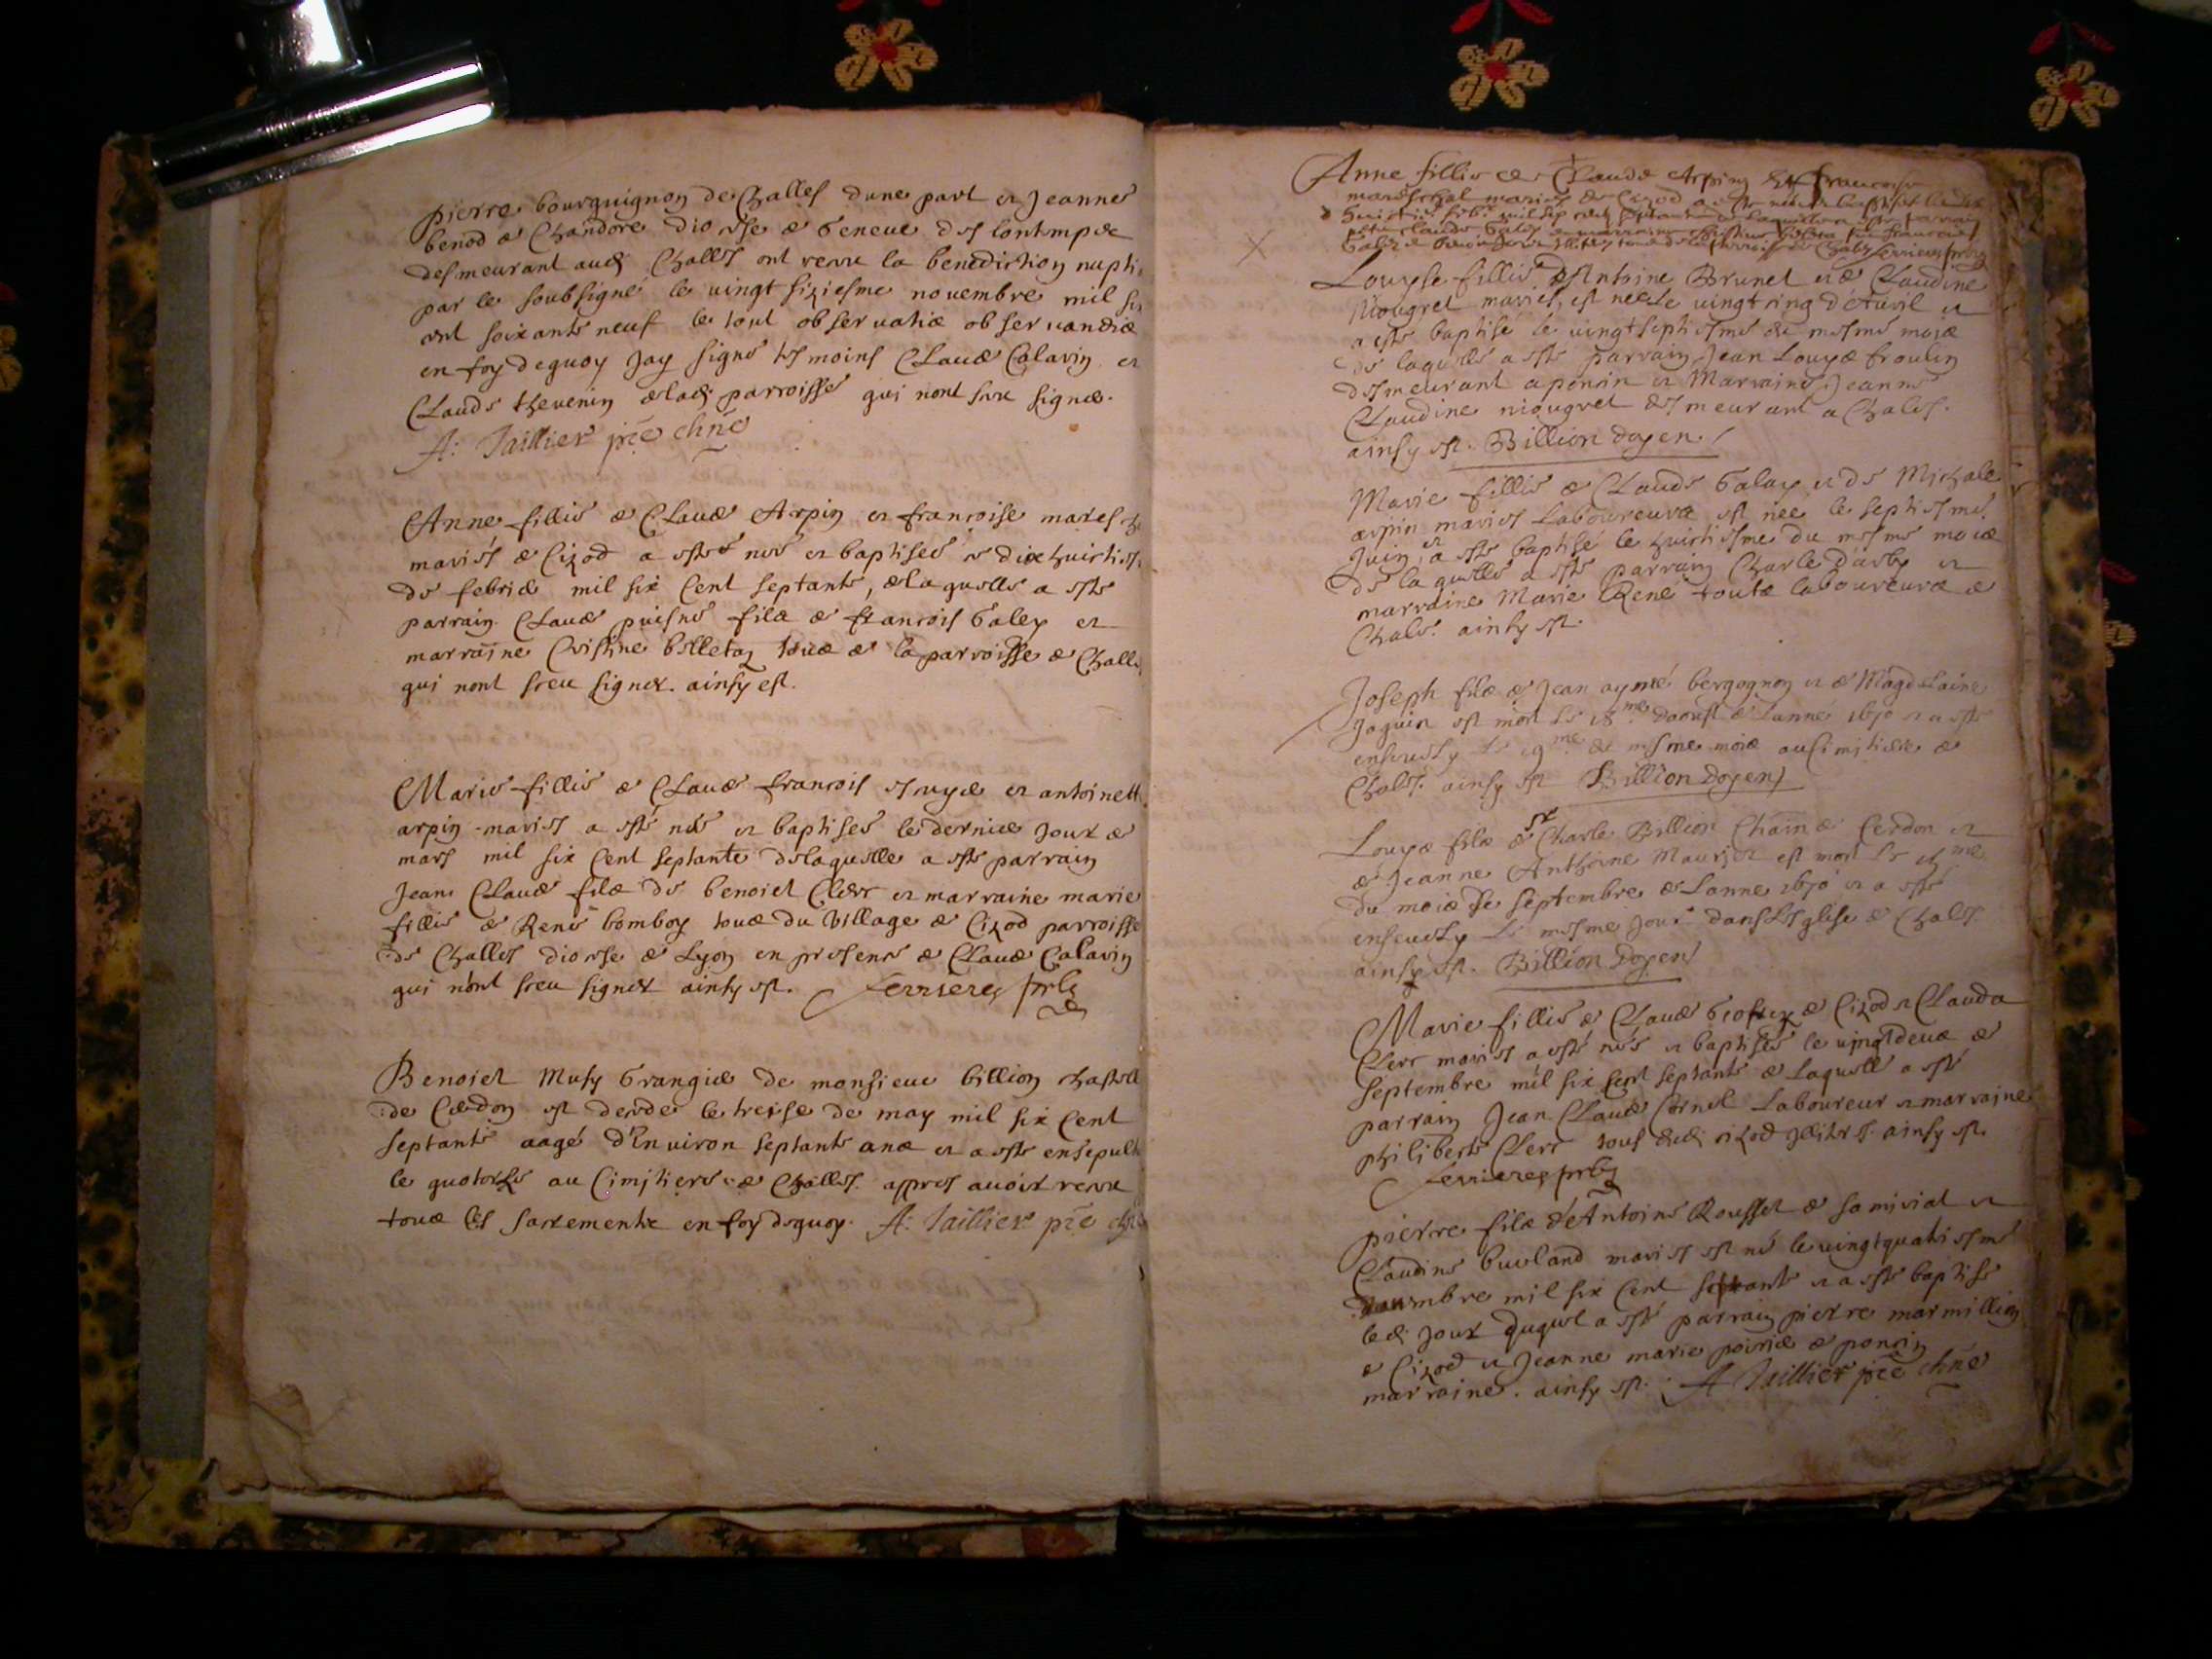 pierre bourguignon de Challes dune part et Jeanne
benod de Chandore diocese de geneve
desmeurant aud Challes ont receu la benediction nupti
par le soubsigné le vingt siziesme novembre mil si
cent soixante neuf le tout observatis observandis
en foy dequoy Jay signé tesmoins Claude Calavin et
Claude thevenin de lad parroisse qui nont sceu signer.
A: Taillier pre
Anne fillie de Claude Arpin et francoise maresch
mariés de Cizod a esté née et baptisée le dixhuicties
de febrier mil six Cent septante, de laquelle a esté
parrain Claude puisné fils de francois Galey et
marraine Cristine billeton tous de la parroisse de Challe
qui nont sceu signer. ainsy est.
Marie fillie de Claude francois et antoinett
arpin mariés a esté née et baptisée le dernier Jour de
mars mil six Cent septante delaquelle a esté parrain
Jean Claude fils de benoict Clerc et marraine marie
fillie de René bomboy tous du village de Cizod parroisse
de Challes diocese de Lyon en presence de Claude Calavin
qui nont sceu signer ainsy est. ferrieres
Benoict Musy Grangier de monsieur billion chastell
de Cerdon est decedé le treise de may mil six Cent
septante aagé d'Environ septante ans et a esté ensepult
le quatorse au Cimitiere de Challes. appres avoir receu
tous les sacrements en foy dequoy. A: Taillier pre
Anne fillie de Claude Arpin et francoise
mareschal mariés de Cizod a esté
parrain
Claude Galey et marraine
parroisse de ferrieres
Louyse fillie D'Antoine Brunet et de Claudine
Niougret mariés, est née le vingt cinq d'Avril et
a esté baptisé le vingtseptiesme du mesme mois
de laquelle a esté parrain Jean Louys froulin
desmeurant a poncin et Marraine Jeanne
Claudine niougret desmeurant a Chales.
ainsy est. Billion doyen.
Marie fillie de Claude Galay et de Michale
arpin mariés Laboureurs est née le septiesme
Juin et a esté baptisé le huictiesme du mesme mois
de laquelle a esté parrain Charle darby et
marraine Marie René touts laboureurs de
Chales. ainsy est.
Joseph fils de Jean aymé bergognon et de Magdelaine
Joguin est mort le 18me daoust de Lanné 1670 et a esté
ensevely le 19me du mesme mois au Cimitiere de
Chales. ainsy est Billion doyen
Louys fils de sr Charle Billion Chain de Cerdon et
de Jeanne Anthoine Maurier est mort le me
du mois de septembre de Lanne 1670 et a esté
ensevely le mesme Jour dans Lesglise de Chales
ainsy est. Billion doyen
Marie fillie de Claude de Cizod et Clauda
Clerc mariés a esté née et baptisée le vingtdeux de
septembre mil six Cent septante de Laquelle a esté
parrain Jean Claude Cornet Laboureur et marraine
philiberte Clerc tous dud cizod illiteres. ainsy est.
ferrieres
pierre fils d'Antoine Rousset de samiviat et
Claudine buvland mariés est né le vingtquatriesme
mil six Cent septante et a esté baptisé
led Jour duquel a esté parrain pierre marmillion
de Cizod et Jeanne marie poirier de poncin
marraine. ainsy est. A Taillier pre